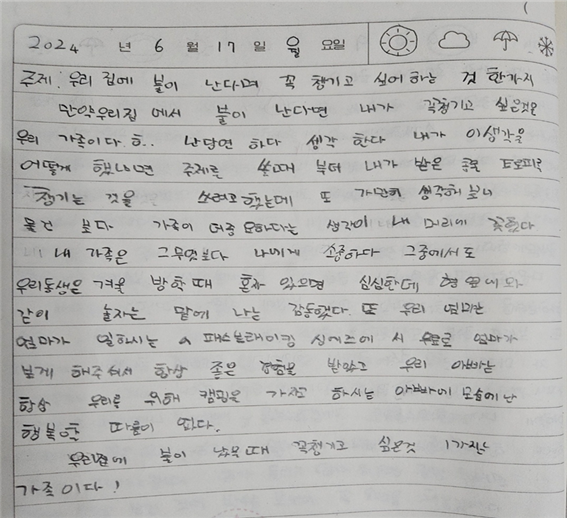 2024 년 6 월 17 일 월 요일
주제: 우리 집에 불이 난다며 꼭 챙기고 싶어 하는 것 한가지
만약우리집 에서 불이 난다면 내가 꼭챙기고 싶은것은
우리 가족이다. 하.. 난당연 하다 생각 한다 내가 이생각을
어떻게 했냐면 주제를 쓸때 부터 내가 받은 트로피를
챙기는 것을 쓰려고 했는데 또 가만히 생각해 보니
물건 보다 가족이 더중요하다는 생각이 내 머리에 꽂혔다
내 가족은 그무엇보다 나에게 소중하다 그중에서도
우리동생은 겨울 방학때 혼자 있으면 심심한데 형
같이 놀자는 말에 나는 감동했다. 또 우리 엄마는
엄마가 일하시는 a 패스브레이킹 에 서 엄마가
보게 해주셔서 항상 좋은 경험을 받았고 우리 아빠는
항상 우리를 위해 캠핑을 가자고 하시는 아빠에 모습에 난
행복할 따름이 였다.
우리집에 불이 났을때 꼭챙기고 싶은것 1가지는
가족이다!